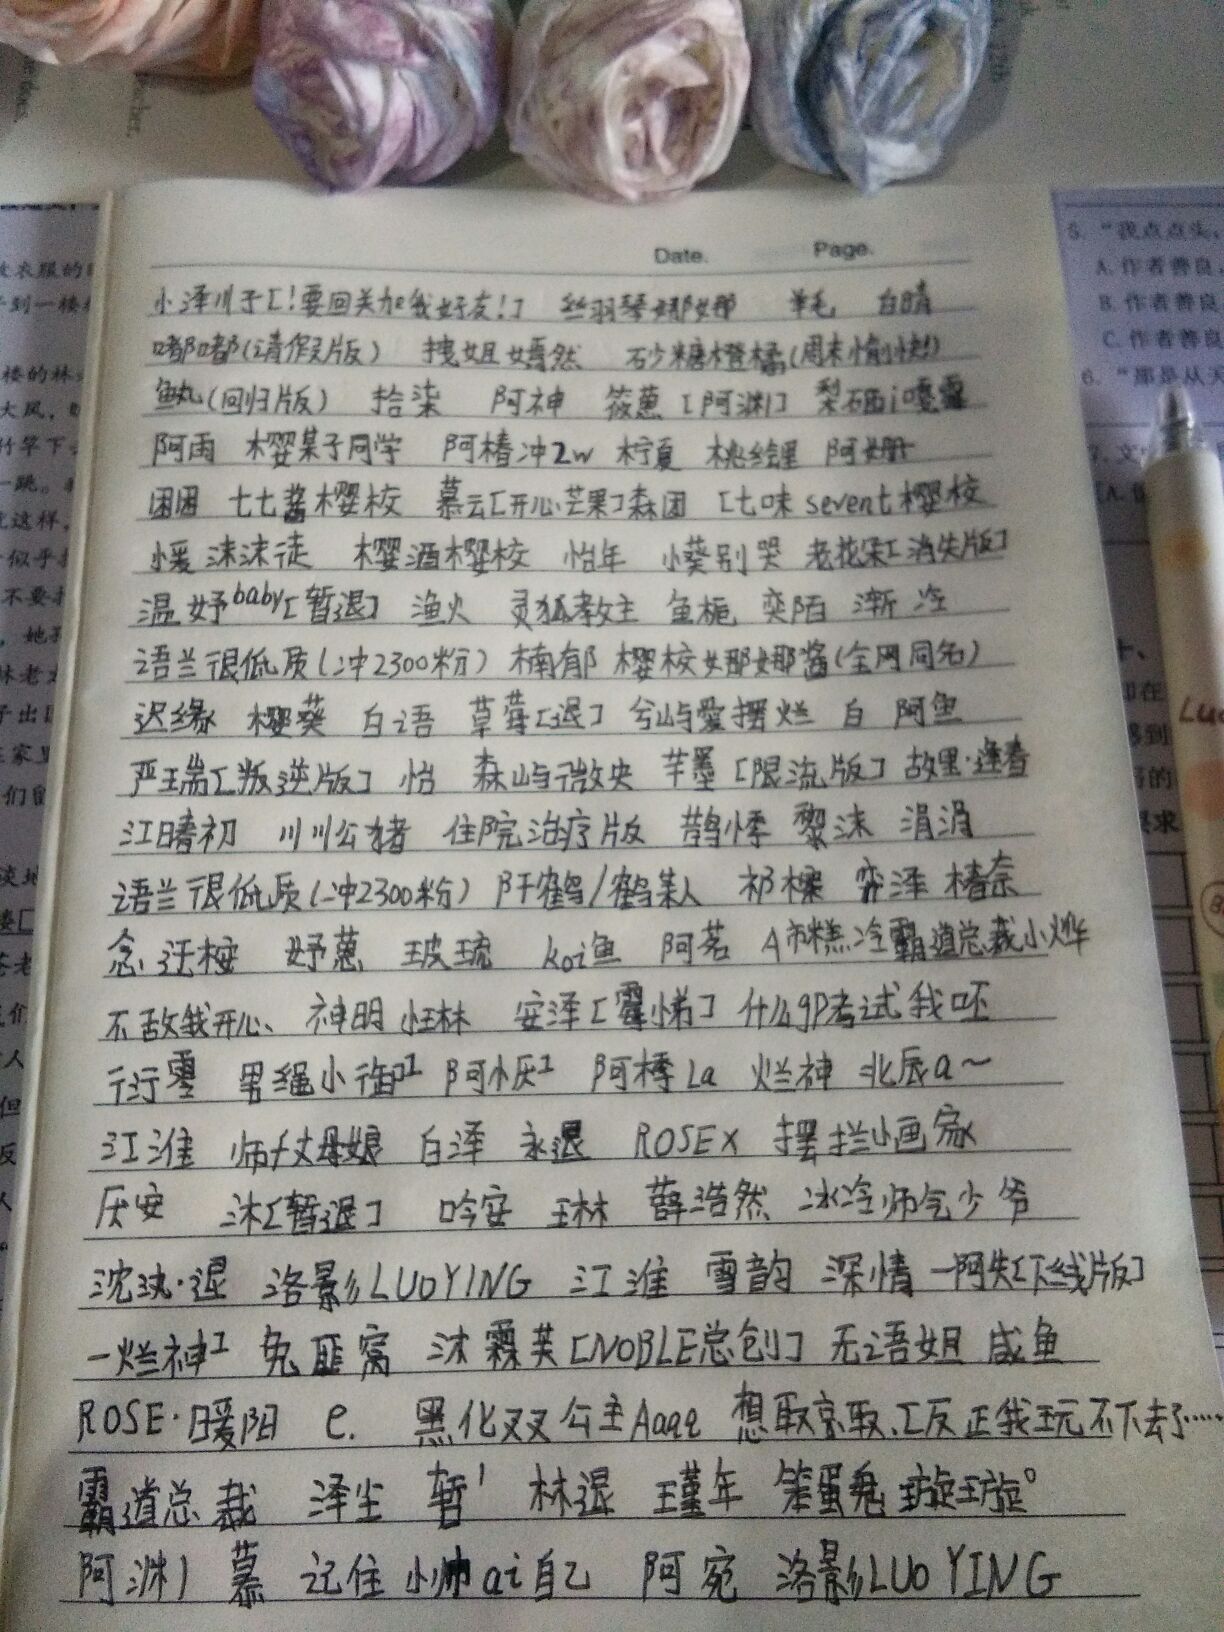 Date. Page.
小泽川子[!要回关加我好友!] 丝羽琴娜娜 羊毛 白晴
嘟嘟(请假版) 拽姐嫣然 砂糖橙橘(周末愉快!)
鱼丸(回归版) 拾柒 阿神 筱葱 [阿渊] 梨硒i嘎霜
阿雨 樱菓子同学 阿椿冲2w 柠夏 桃绘里 阿姗
困困 七七酱樱校 慕云[开心芒果]森团 [七味sevent樱校
煖 沫沫徒 樱酒樱校 怡年 小葵别哭 老花朵[消失版]
温妤baby[暂退] 渔火 灵狐教主 鱼栀 奕陌 渐冷
语兰很低质(冲2300粉) 楠郁 樱校娜娜酱(全网同名)
迟缘 樱葵 白语 草莓[退] 兮屿愛摆烂 白 阿鱼
严瑞[叛逆版] 怡 森屿微央 芊墨[限流版] 故里·逢春
江晴初 川川公猪 住院治疗版 鹊悸 黎沫 涓涓
语兰很低质(冲2300粉) 阡鹤/鹤某人 祁樑 弈泽 椿奈
念迁桉 妤葱 玻琉 koi鱼 阿茗 A市糕冷霸道总裁小烨
不敌我开心、 神明 怔林 安泽[霉悌] 什么gp考试我呸
行零 男绳小御工 阿恹工 阿樗La 烂神 北辰a~
江淮 师丈母娘 白泽 永退 ROSEX 摆拦小画家
厌安 沐[暂退] 吟安 王林 薛浩然 冰冷帅气少爷
沈泱·退 洛影LUOYING 江淮 雪韵 深情一阿失[下线版]
一烂神工 兔匪窝 沐霖芙[NOBLE总创] 无语姐 咸鱼
ROSE·暖阳 e. 黑化叉叉公主Aaqe 想取京取、[反正我玩不下去了……
霸道总裁 泽尘 暂' 林退 瑾年 笨蛋兔璇璇°
阿渊 慕 记住小帅ai自己 阿宛 洛影LUOYING
5.“我点点头，
A.作者善良
B.作者善良
C.作者善良
6.“那是从天